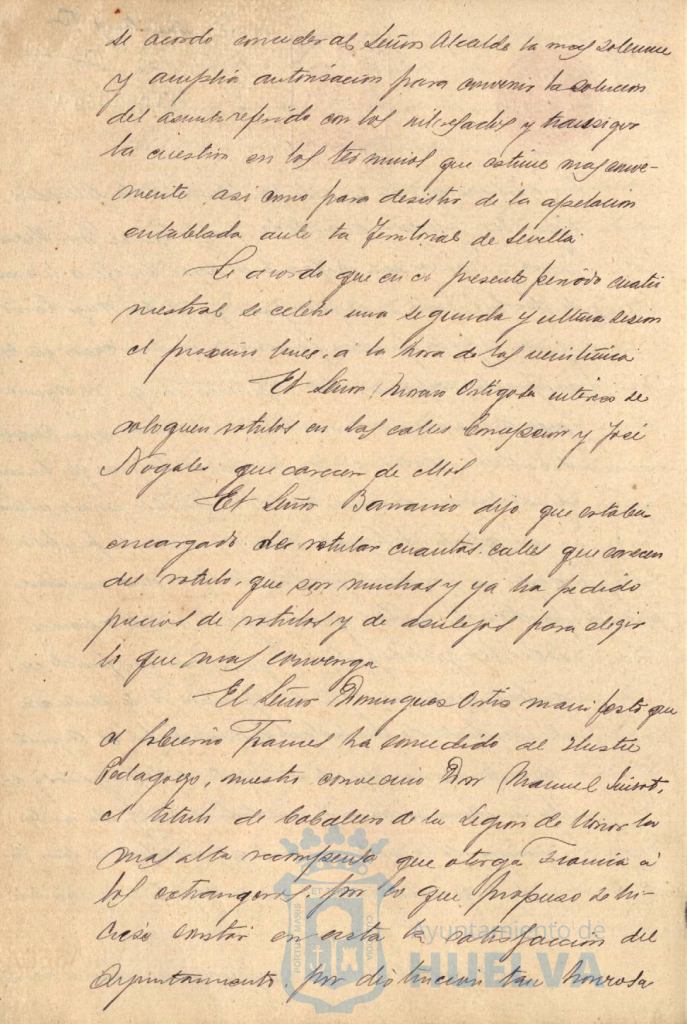 se acordo conceder al Señor Alcalde la mas solemne
y amplia autorisacion para convenir la solucion
del asunto referido con los interesados y transigir
la cuestion en los terminos que estime mas conve-
niente, asi como para desistir de la apelacion
entablada ante la Territorial de Sevilla
Se acordo que en el presente periodo cuatri
mestral se celebre una segunda y ultima sesion
el proximo lunes, a la hora de las veintiuna
El Señor Moreno Ortigosa intereso se
coloquen rotulos en las calles Concepcion y José
Nogales que carecen de ellos
El Señor Barranco dijo que estaba
encargado de rotular cuantas calles que carecen
del rotulo, que son muchas y ya ha pedido
precios de rotulos y de asulejos para elegir
lo que mas convenga
El Señor Domingues Ortis manifesto que
el gobierno Frances ha concedido al Ilustre
Pedagogo, nuestro convecino Don Manuel Siurot,
el titulo de Caballero de la Legion de Honor la
mas alta recompensa que otorga Francia á
los extrangeros, por lo que propuso se hi-
ciese constar en esta la satisfacción del
Ayuntamiento, por distincion tan honrosa
PORTUS MARIS ET TERRAE CUSTODIA
Ayuntamiento de
HUELVA